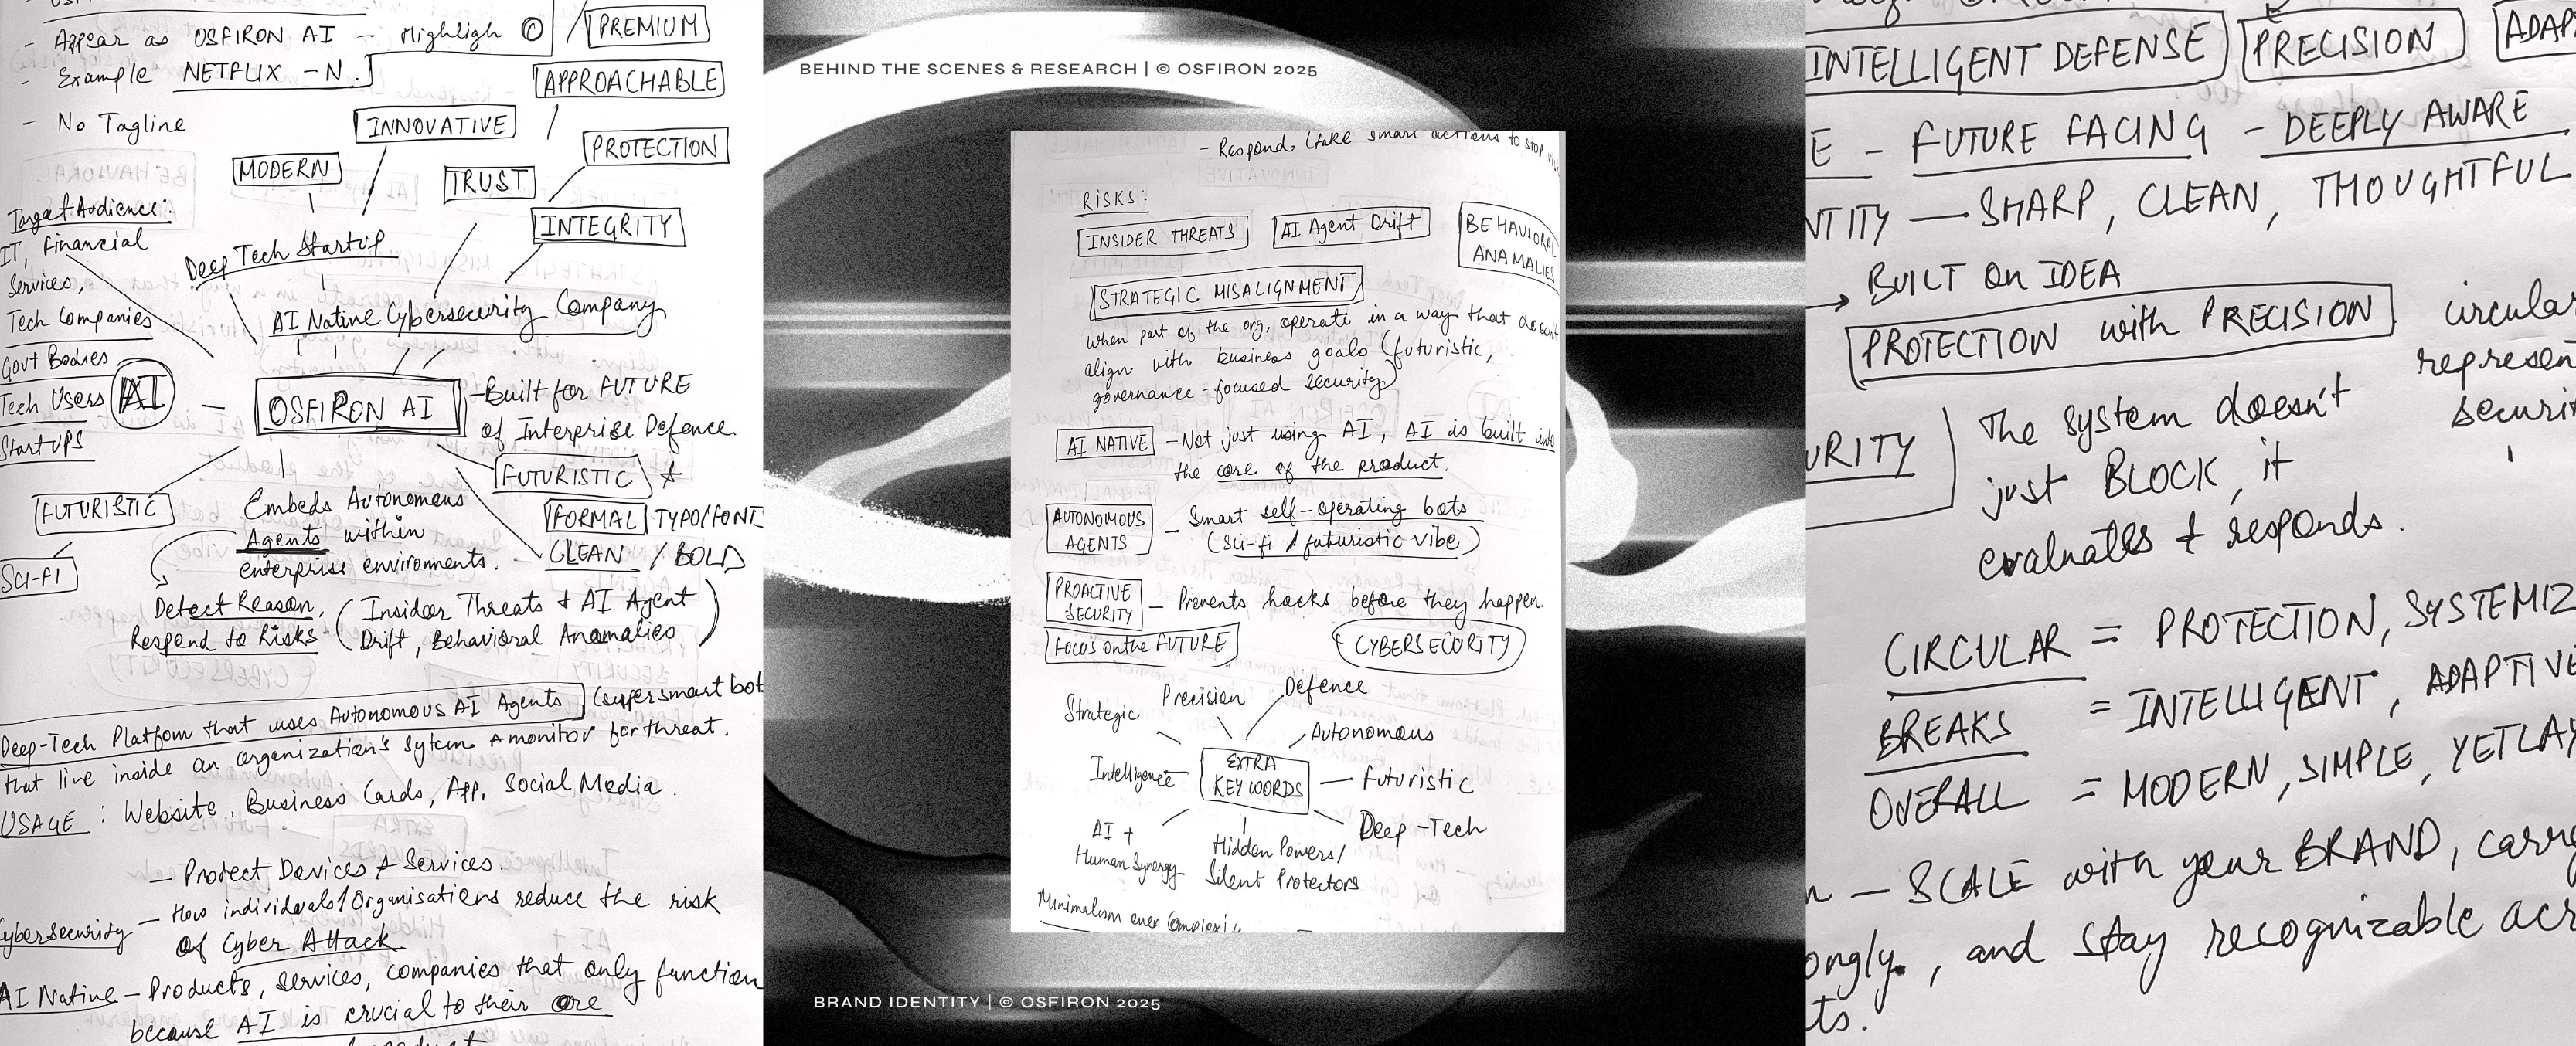 - Appear as OSFIRON AI - Highligh O
- Example NETFLIX - N.
- No Tagline
PREMIUM
APPROACHABLE
INNOVATIVE
PROTECTION
MODERN
TRUST
INTEGRITY
Target Audience:
IT, Financial
Services,
Tech Companies
Govt Bodies
Tech Users
StartUPS
Deep Tech StartUP
AI Native Cybersecurity Company
AI
OSFIRON AI
- Built for FUTURE
of Interprise Defence.
FUTURISTIC &
FORMAL TYPO/FONT
CLEAN / BOLD
FUTURISTIC
SCI-FI
Embeds Autonomous
Agents within
enterprise enviroments.
Detect Reason,
Respond to Risks - (Insider Threats & AI Agent
Drift, Behavioral Anomalies)
Deep-Tech Platfom that uses Autonomous AI Agents (super smart bot
that live inside an organization's sytem & monitor for threat.
USAGE : Website, Business Cards, App, Social Media.
- Protect Devices & Services.
Cybersecurity - How individuals/Organisations reduce the risk
of Cyber Attack
AI Native - Products, services, companies that only function
because AI is crucial to their core
BEHIND THE SCENES & RESEARCH | © OSFIRON 2025
- Respond (take smart actions to stop
RISKS:
INSIDER THREATS
AI Agent Drift
BEHAVIORAL
ANAMALIES
STRATEGIC MISALIGNMENT
when part of the org, operate in a way that doesn't
align with business goals (futuristic,
governance-focused security)
AI NATIVE - Not just using AI, AI is built into
the core of the product.
AUTONOMOUS
AGENTS
- Smart self-operating bots
(Sci-fi / futuristic vibe)
PROACTIVE
SECURITY
- Prevents hacks before they happen.
FOCUS on the FUTURE
CYBERSECURITY
Strategic
Precision
Defence
Autonomous
Intelligence
EXTRA
KEYWORDS
Futuristic
AI +
Human Synergy
Hidden Powers/
Silent Protectors
Deep-Tech
Minimalism over
BRAND IDENTITY | © OSFIRON 2025
INTELLIGENT DEFENSE
PRECISION
ADAP
E - FUTURE FACING - DEEPLY AWARE
NTITY - SHARP, CLEAN, THOUGHTFUL
→ BUILT On IDEA
PROTECTION with PRECISION
circular
represen
securit
URITY
The system doesn't
just BLOCK, it
evaluates & responds.
CIRCULAR = PROTECTION, SYSTEMIZ
BREAKS = INTELLIGENT, ADAPTIVE
OVERALL = MODERN, SIMPLE, YET LAY
n - SCALE with your BRAND, carry
ongly, and stay recognizable acr
ts.